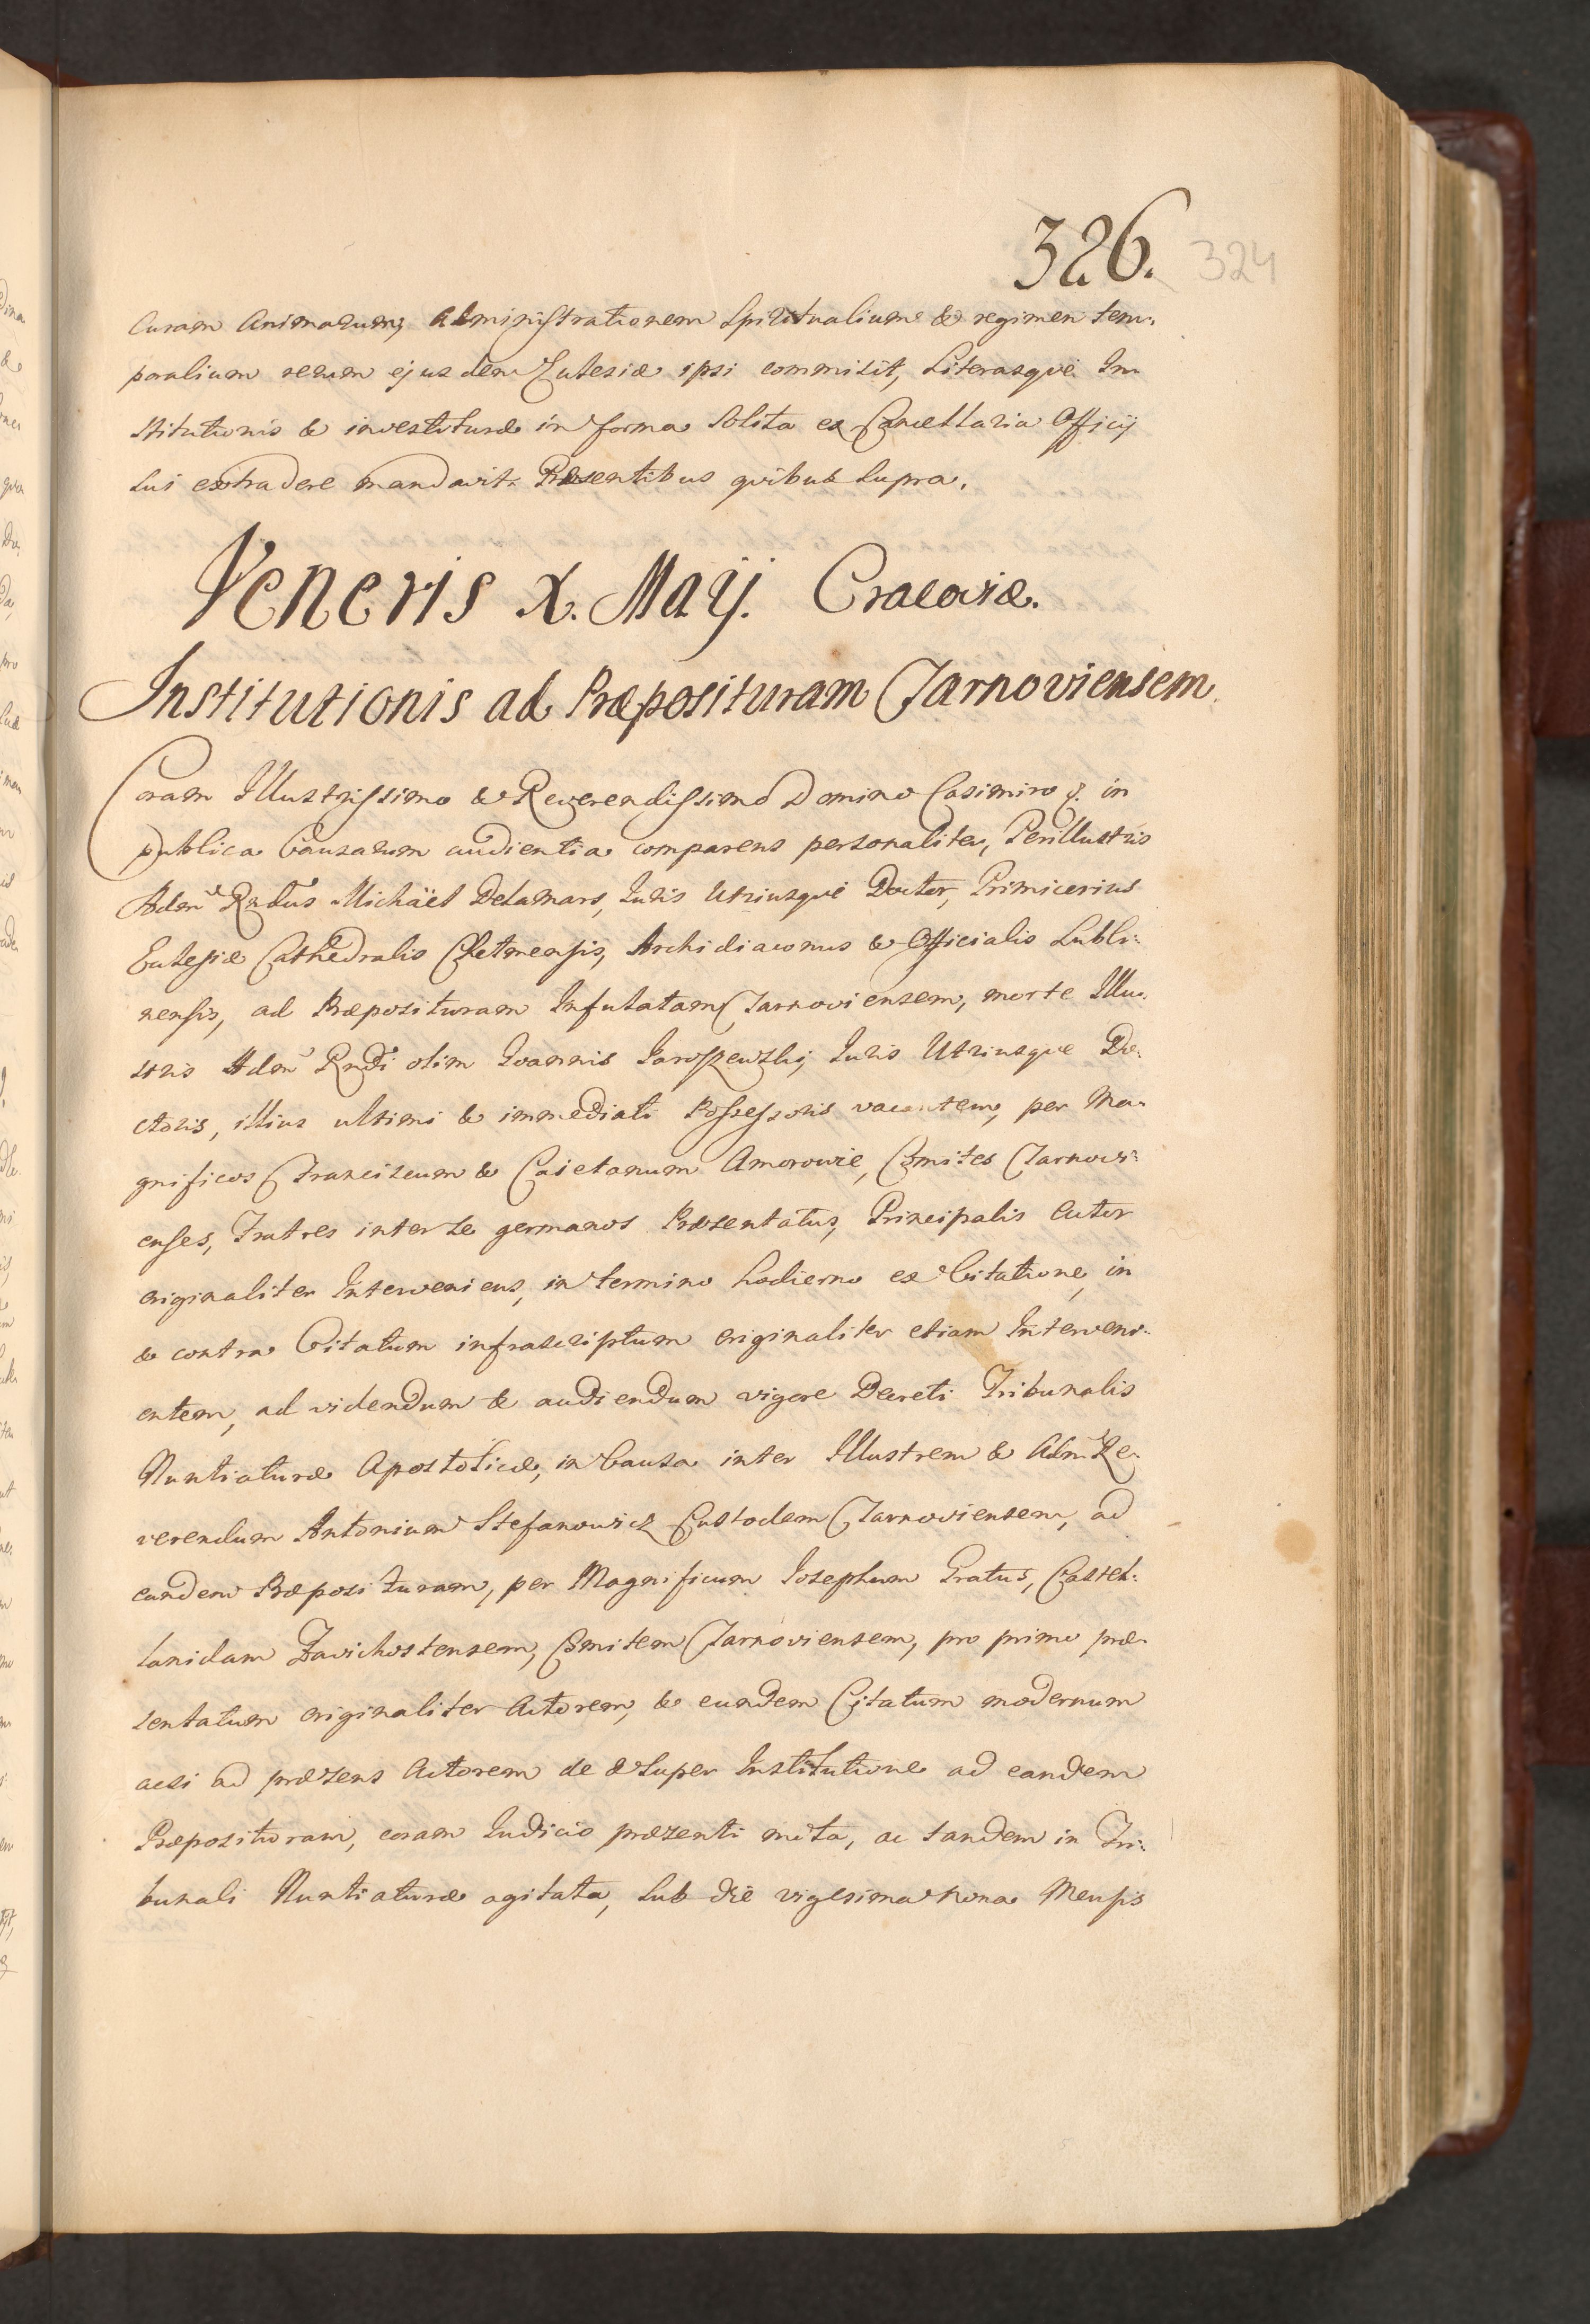 326.
324
Curam Animarum, administrationem Spiritualium & regimen tem:
poralium rerum ejusdem Ecclesiæ ipsi commisit, Literasque In
stitutionis & investituræ in forma solita ex Cancellaria Officij
sui extradere mandavit. Præsentibus quibus supra.
Veneris X. Maij. Cracoviæ.
Institutionis ad Præposituram Tarnoviensem.
Coram Illustrissimo & Reverendissimo Domino Casimiro &. in
publica Causarum audientia comparens personaliter, Perillustris
Admᵈ Rndus Michäel Delamars, Juris Utriusque Doctor, Primicerius
Ecclesiæ Cathedralis Chelmensis, Archidiaconus & Officialis Lubli:
nensis, ad Præposituram Infulatam Tarnoviensem, morte Illu:
stris Adm Rndi olim Joannis Jaroszewski, Juris Utriusque Do:
ctoris, illius ultimi & immediati Possessoris vacantem, per Ma:
gnificos Franciscum & Caietanum Amorowie, Comites Tarnovi:
enses, Fratres inter se germanos Præsentatus, Principalis Actor
originaliter Interveniens, in termino hodierno ex Citatione, in
& contra Citatum infrascriptum originaliter etiam Interveni:
entem, ad videndum & audiendum vigore Decreti Tribunalis
Nuntiaturæ Apostolicæ, in Causa inter Illustrem & Adm Re:
verendum Antonium Stefanowicz Custodem Tarnoviensem, ad
eandem Præposituram, per Magnificum Josephum Pratus, Castel:
lanidam Zavichostensem, Comitem Tarnoviensem, pro primo præ:
sentatum originaliter Actorem, & eundem Citatum modernum
acsi ad præsens Actorem de & super Institutione ad eandem
Præposituram, coram Judicio præsenti mota, ac tandem in Tri:
bunali Nuntiaturæ agitata, sub die vigesima nona Mensis